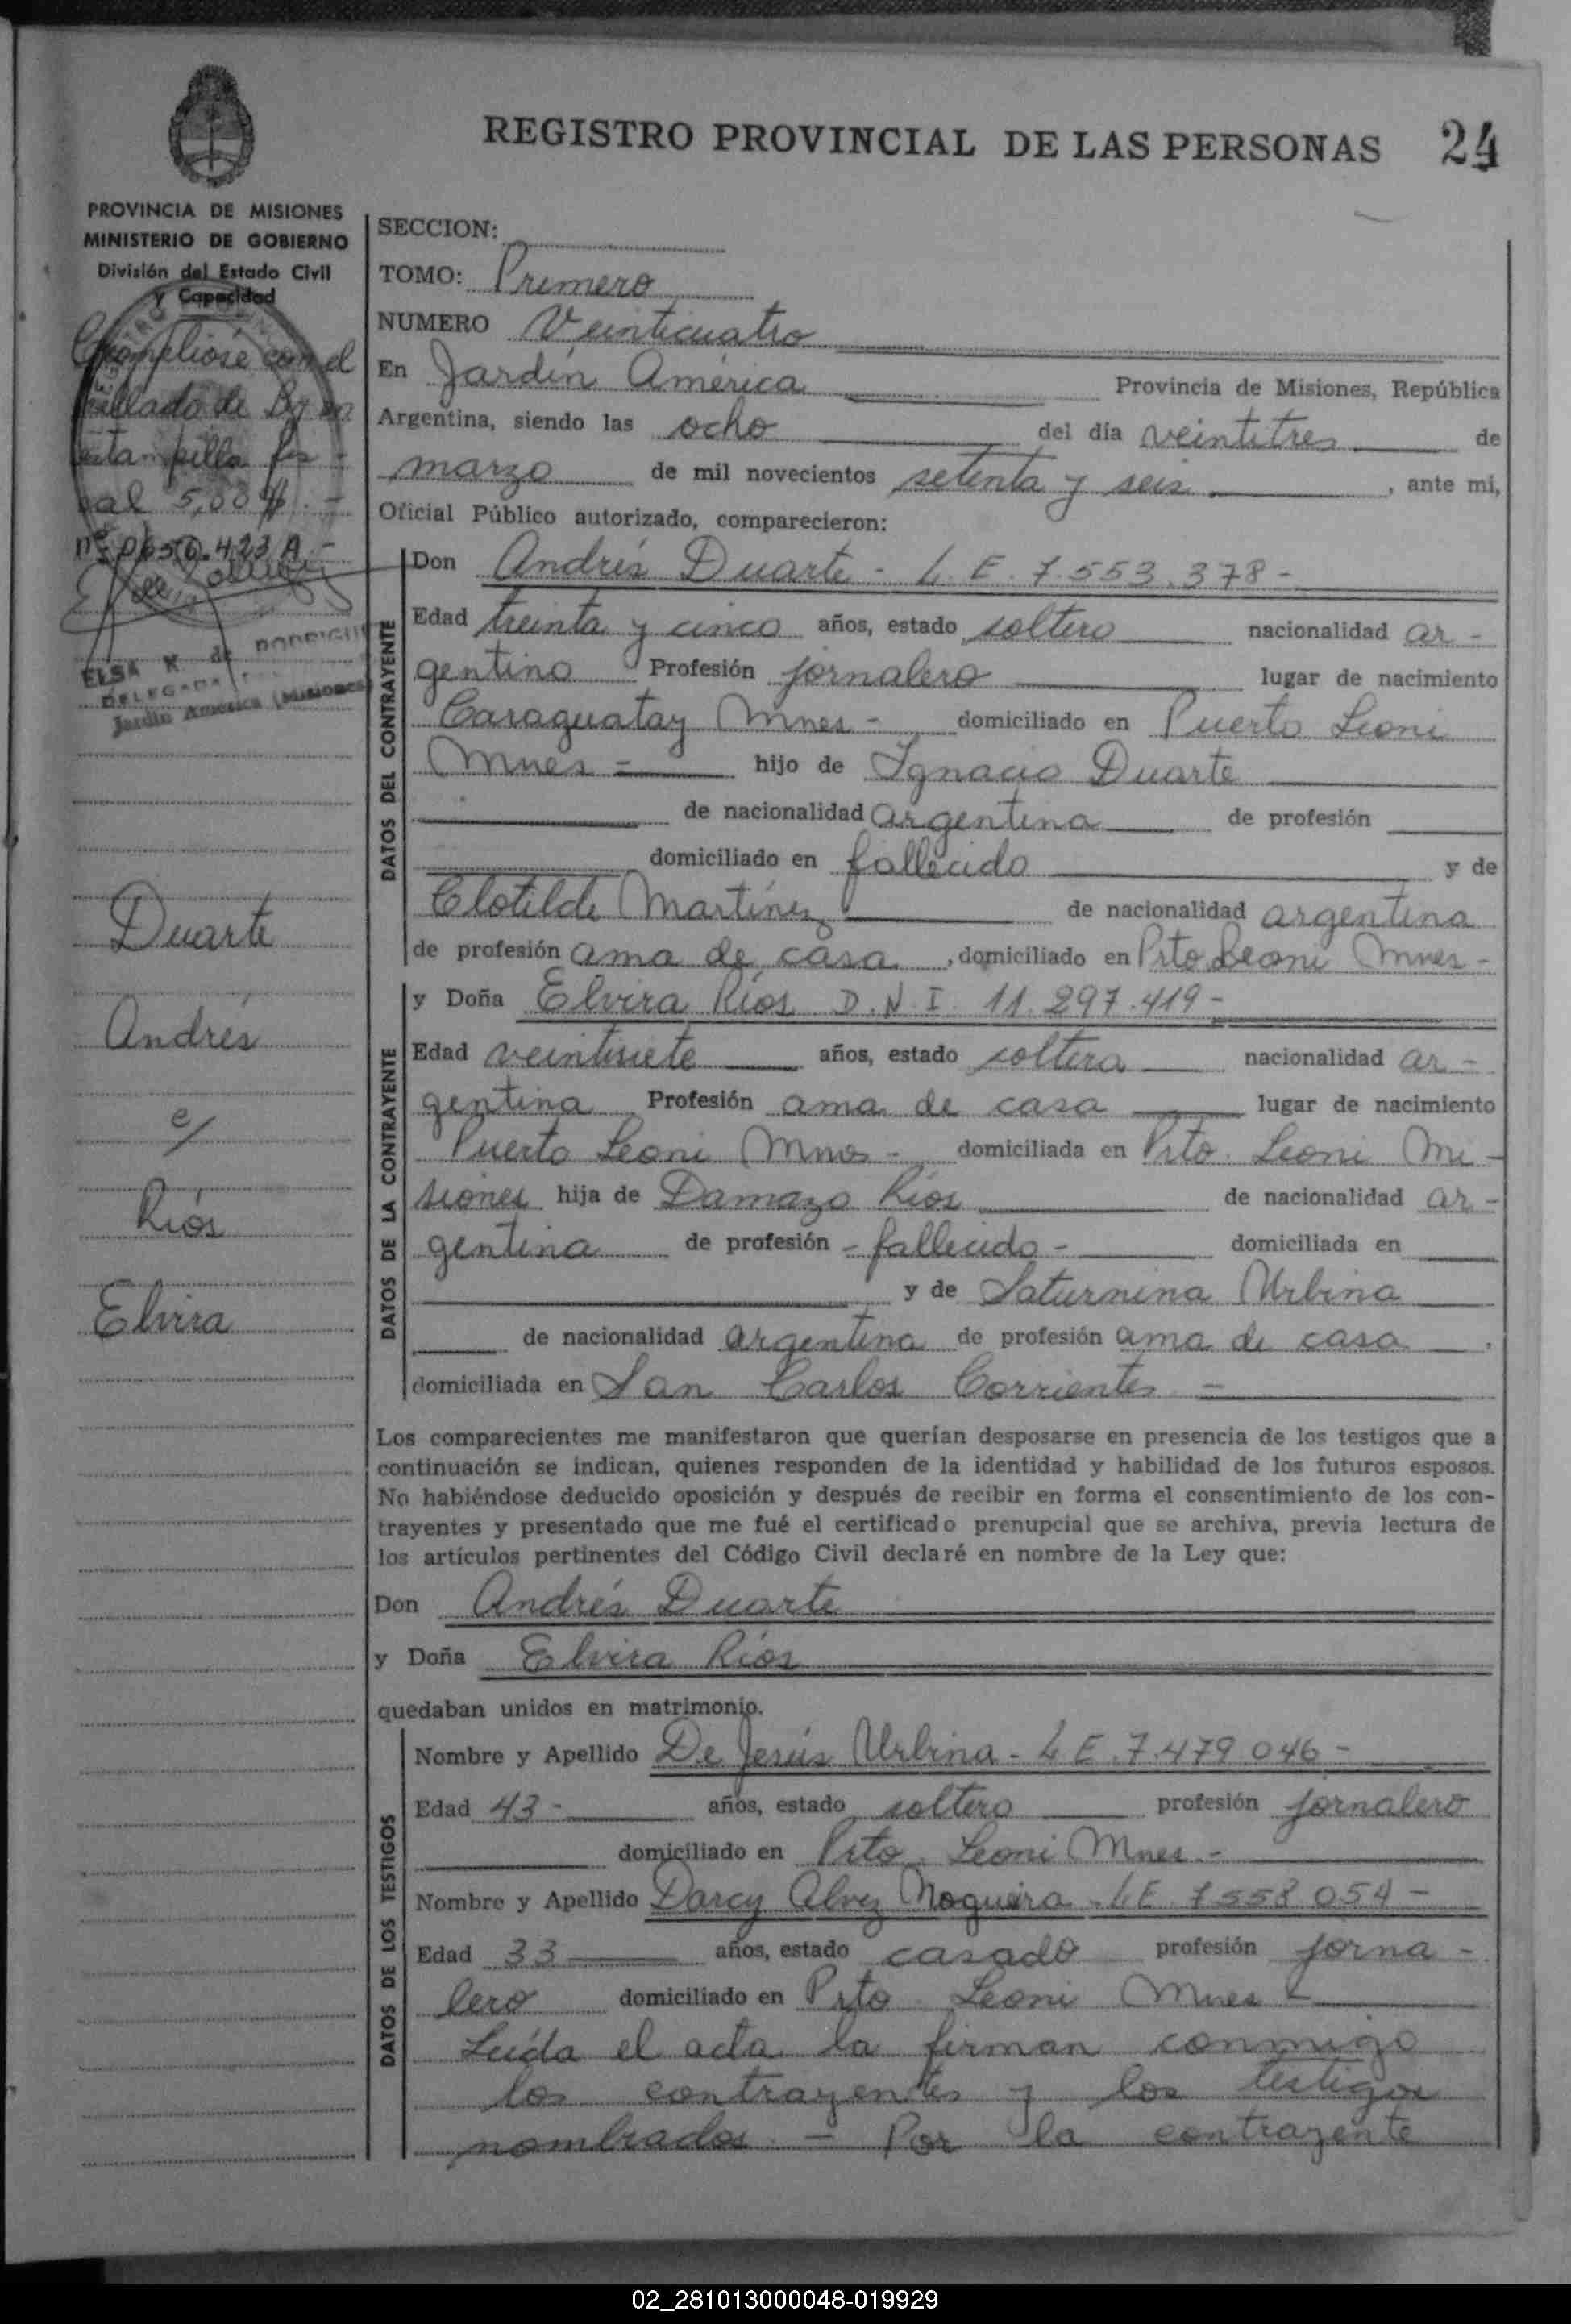 REGISTRO PROVINCIAL DE LAS PERSONAS 24
PROVINCIA DE MISIONES
MINISTERIO DE GOBIERNO
División del Estado Civil
y Capacidad
Cumpliose con el
sellado de Ley en
estampilla fis-
cal 5,00 $. -
nº 0650.423 A. -
ELSA K de RODRIGU
DELEGADA
Jardín América (Misiones)
Duarte
Andrés
c/
Ríos
Elvira
SECCION:
TOMO: Primero
NUMERO Veinticuatro
En Jardín América Provincia de Misiones, República
Argentina, siendo las ocho del día veintitres de
marzo de mil novecientos setenta y seis, ante mi,
Oficial Público autorizado, comparecieron:
DATOS DEL CONTRAYENTE
Don Andrés Duarte - L. E. 7.553.378 -
Edad treinta y cinco años, estado soltero nacionalidad ar -
gentino Profesión jornalero lugar de nacimiento
Caraguatay Mnes - domiciliado en Puerto Leoni
Mnes - hijo de Ignacio Duarte
de nacionalidad argentina de profesión
domiciliado en fallecido y de
Clotilde Martínez de nacionalidad argentina
de profesión ama de casa, domiciliado en Pto Leoni Mnes -
DATOS DE LA CONTRAYENTE
y Doña Elvira Ríos D.N.I. 11.297.419 -
Edad veintisiete años, estado soltera nacionalidad ar -
gentina Profesión ama de casa lugar de nacimiento
Puerto Leoni Mnes - domiciliada en Pto. Leoni Mi -
siones hija de Damazo Ríos de nacionalidad ar -
gentina de profesión - fallecido - domiciliada en
y de Saturnina Urbina
de nacionalidad argentina de profesión ama de casa.
domiciliada en San Carlos Corrientes -
Los comparecientes me manifestaron que querían desposarse en presencia de los testigos que a
continuación se indican, quienes responden de la identidad y habilidad de los futuros esposos.
No habiéndose deducido oposición y después de recibir en forma el consentimiento de los con-
trayentes y presentado que me fué el certificado prenupcial que se archiva, previa lectura de
los artículos pertinentes del Código Civil declaré en nombre de la Ley que:
Don Andrés Duarte
y Doña Elvira Ríos
quedaban unidos en matrimonio.
DATOS DE LOS TESTIGOS
Nombre y Apellido De Jesús Urbina - L E. 7.479.046 -
Edad 43 - años, estado soltero profesión jornalero
domiciliado en Pto. Leoni Mnes. -
Nombre y Apellido Darcy Alvez Nogueira - L E 7.558.054 -
Edad 33 años, estado casado profesión jorna -
lero domiciliado en Pto Leoni Mnes -
Leída el acta la firman conmigo
los contrayentes y los testigos
nombrados. - Por la contrayente
02_281013000048-019929